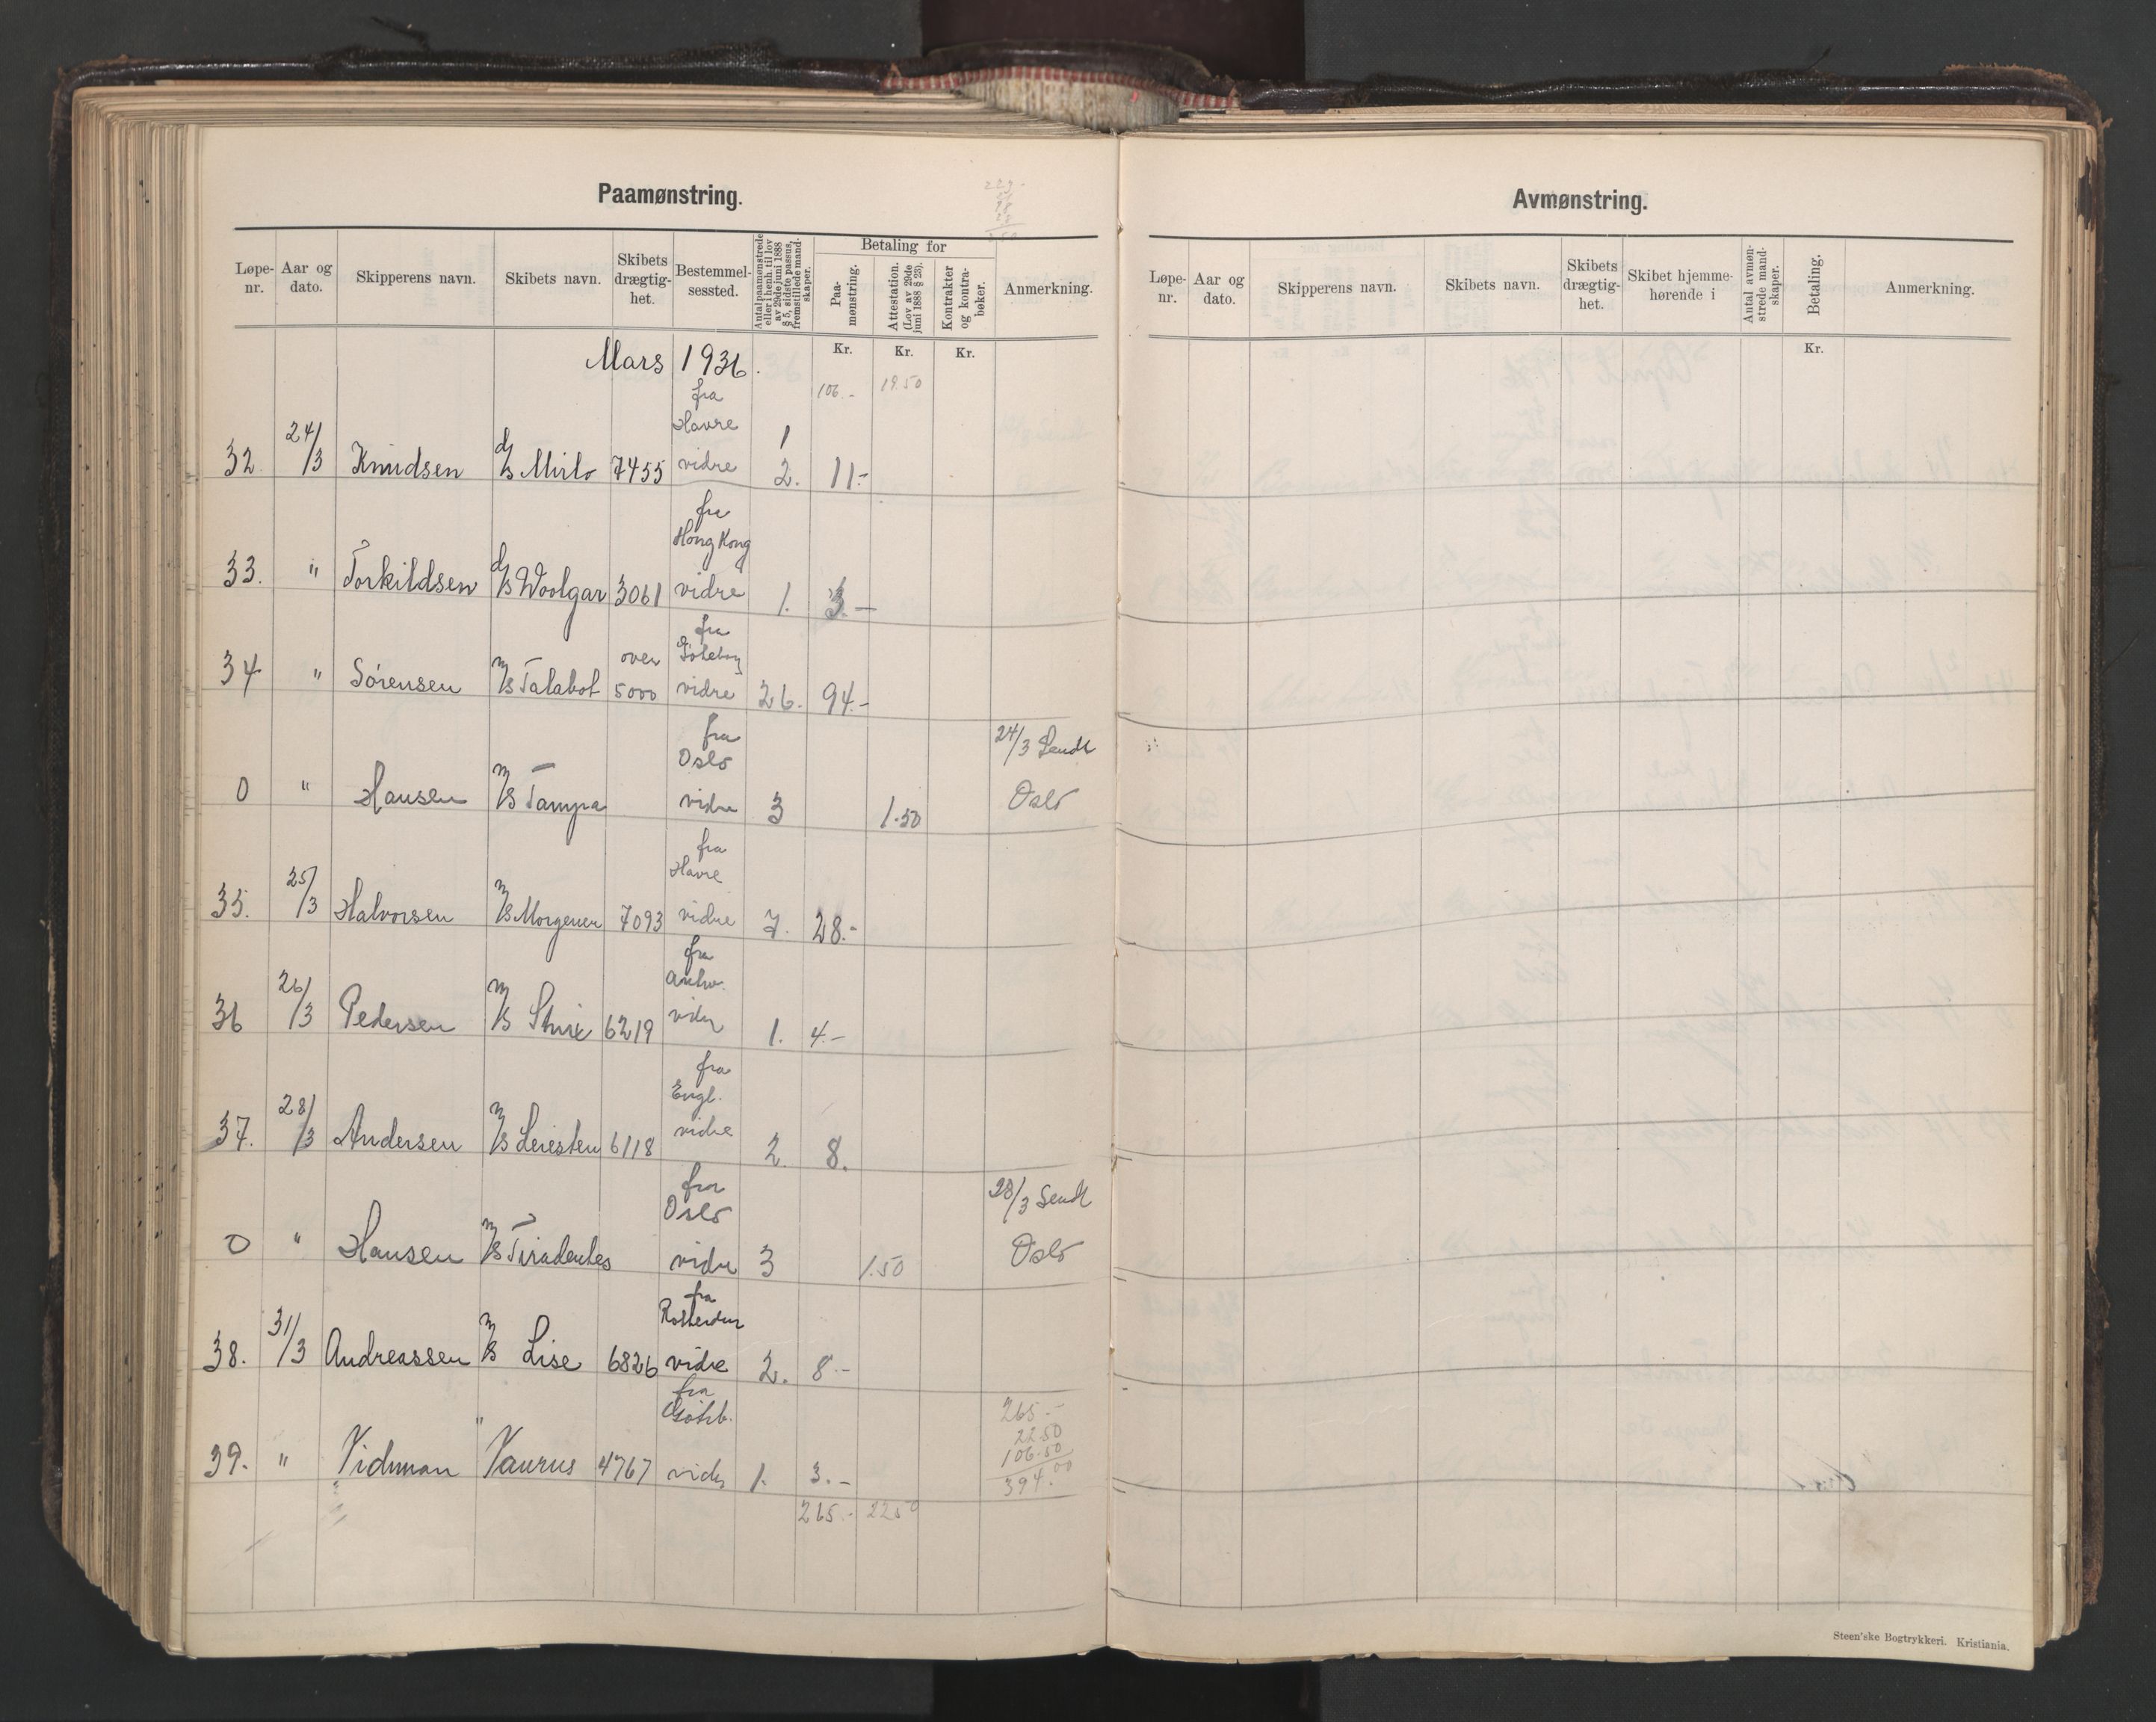 Paamønstring.
Løpe-nr.
Aar og dato.
Skipperens navn.
Skibets navn.
Skibets drægtig-het.
Bestemmel-sessted.
Antal paamønstrede eller i henh. til lov av 29de juni 1888 § 5, sidste passus, fremstillede mand-skaper.
Betaling for
Paa-mønstring.
Attestation. (Lov av 29de juni 1888 § 23).
Kontrakter og kontra-bøker.
Anmerkning.
Kr. Kr. Kr.
Mars 1936.
106.- 19.50
fra
Havre
1
32 24/3 Knudsen d/s Mirlo 7455 vidre 2. 11.-
fra
Hong Kong
33. " Torkildsen d/s Woolgar 3061 vidre 1. 3.-
fra
over Göteborg
34 " Sörensen m/s Talabot 5000 vidre 26. 94.-
fra
Oslo 24/3 Sendt
0 " Hansen m/s Tampa vidre 3 1.50 Oslo
fra
Havre
35. 25/3 Halvorsen m/s Morgenen 7093 vidre 7. 28.-
fra
Antw.
36 26/3 Pedersen m/s 6219 vidre 1. 4.-
fra
Engl.
37. 28/3 Andersen m/s Leiesten 6118 vidre 2. 8.
fra
Oslo 28/3 Sendt
0 " Hansen m/s Tiradentes vidre 3 1.50 Oslo
fra
Rotterdam
38. 31/3 Andreassen m/s Lise 6826 vidre 2. 8.-
fra
Göteb.
39. " Vidnman " Taurus 4767 vidre 1. 3.-
265.- 22.50
265.-
22.50
106.50
394.00
Avmønstring.
Løpe-nr.
Aar og dato.
Skipperens navn.
Skibets navn.
Skibets drægtig-het.
Skibet hjemme-hørende i
Antal avmøn-strede mand-skaper.
Betaling.
Anmerkning.
Kr.
Steen'ske Bogtrykkeri. Kristiania.